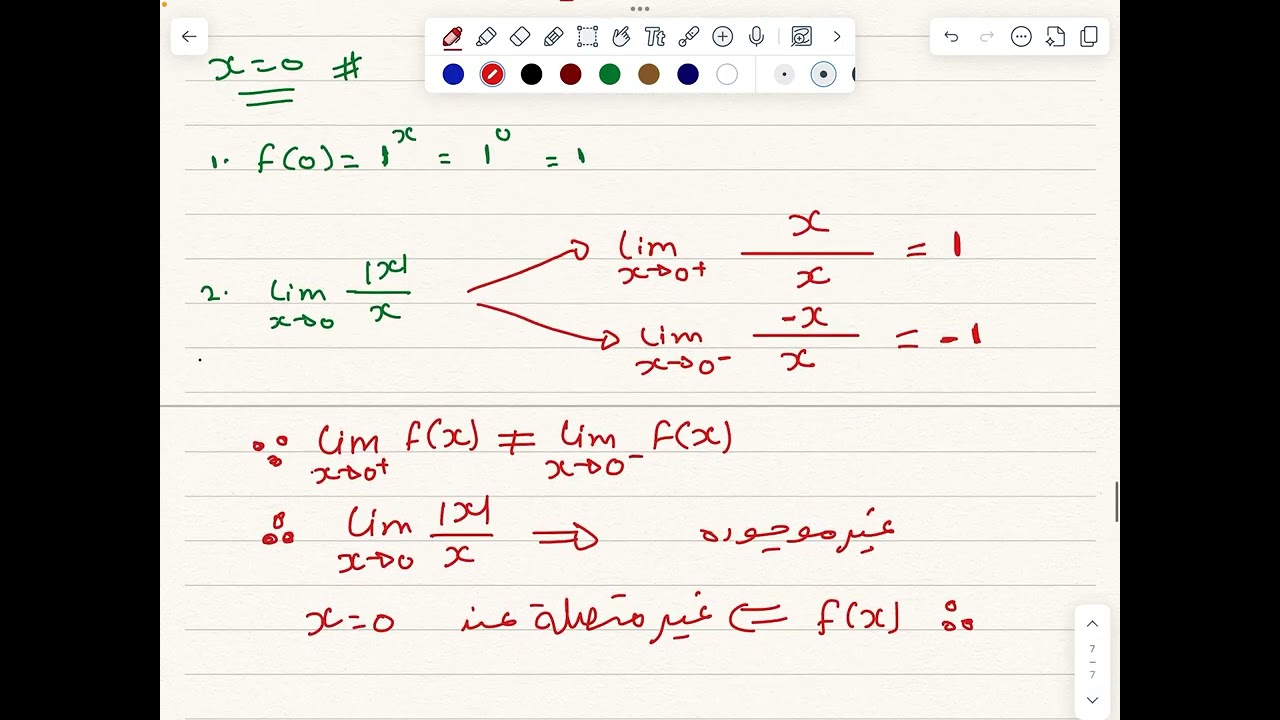 x=0 #
1. f(0) = 1^x = 1^0 = 1
2. lim x→0 |x|/x
lim x→0+ x/x = 1
lim x→0- -x/x = -1
∵ lim x→0+ f(x) ≠ lim x→0- f(x)
∴ lim x→0 |x|/x ⇒ غير موجوده
∴ f(x) ⇐ غير متصلة عند x=0
Tt
7
7